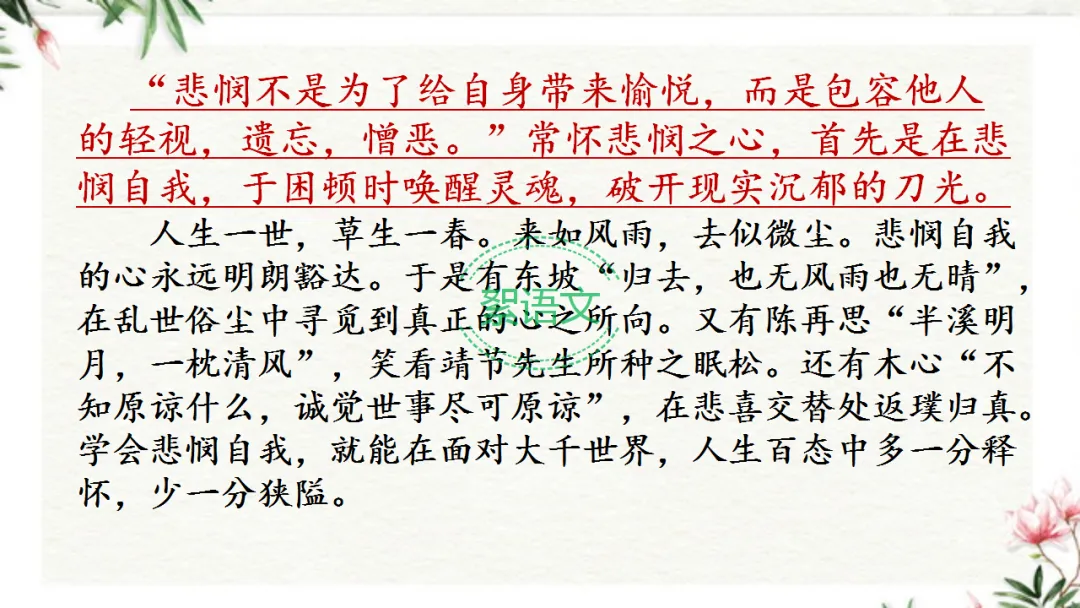 “悲悯不是为了给自身带来愉悦，而是包容他人
的轻视，遗忘，憎恶。”常怀悲悯之心，首先是在悲
悯自我，于困顿时唤醒灵魂，破开现实沉郁的刀光。
人生一世，草生一春。来如风雨，去似微尘。悲悯自我
的心永远明朗豁达。于是有东坡“归去，也无风雨也无晴”，
在乱世俗尘中寻觅到真正的心之所向。又有陈再思“半溪明
月，一枕清风”，笑看靖节先生所种之眠松。还有木心“不
知原谅什么，诚觉世事尽可原谅”，在悲喜交替处返璞归真。
学会悲悯自我，就能在面对大千世界，人生百态中多一分释
怀，少一分狭隘。
絮语文